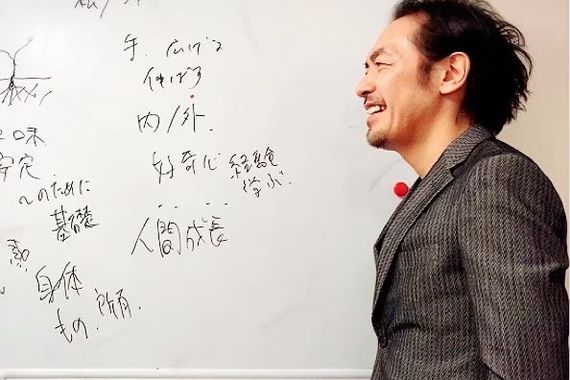 手、広げる
伸ばす
内/外.
好奇心 経験
学ぶ.
人間成長
口味
安定.
〜のために
基礎
身体
もの.所有.